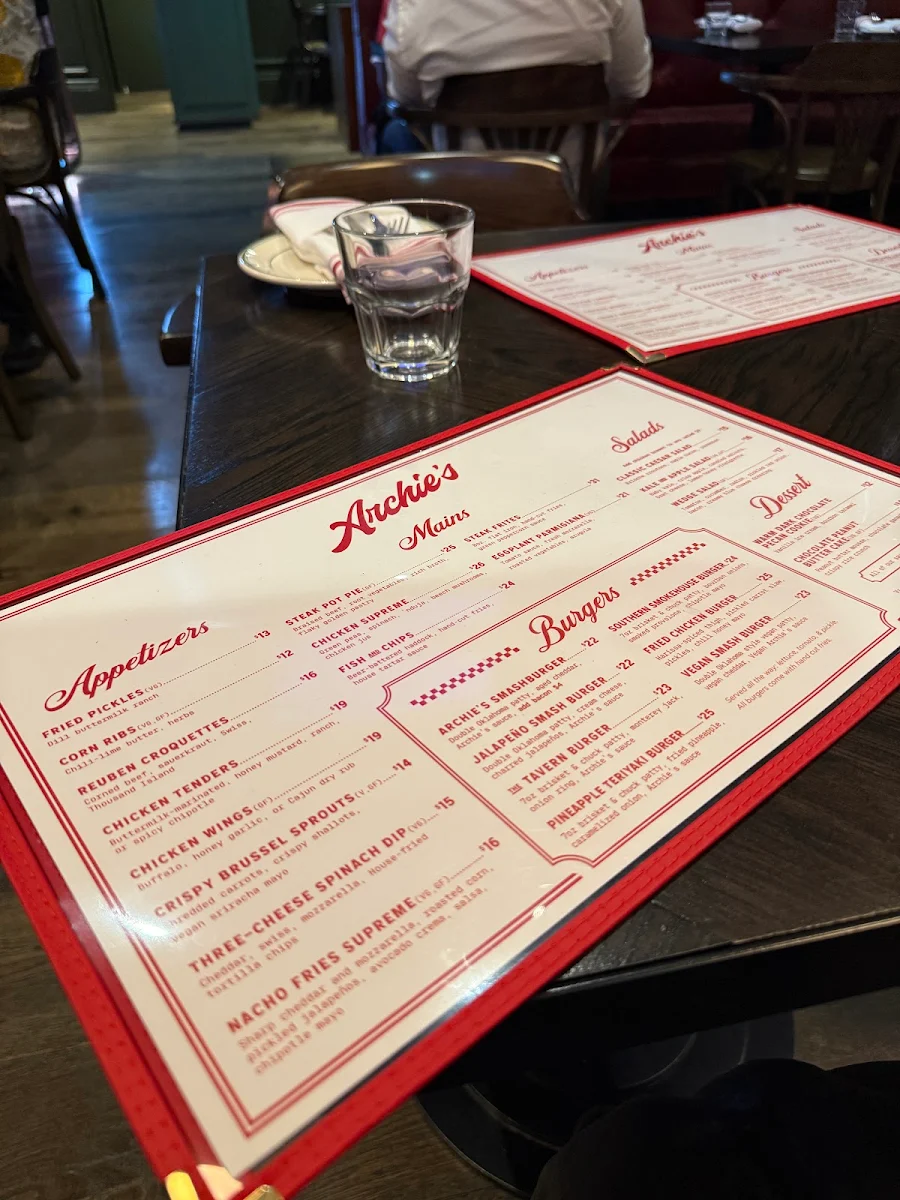 Archie's
Appetizers
FRIED PICKLES (VG) $13
Dill buttermilk ranch
CORN RIBS (VG,GF) $12
Chili-lime butter, herbs
REUBEN CROQUETTES $16
Corned beef, sauerkraut, Swiss,
Thousand Island
CHICKEN TENDERS $19
Buttermilk-marinated, honey mustard, ranch,
or spicy chipotle
CHICKEN WINGS (GF) $19
Buffalo, honey garlic, or Cajun dry rub
CRISPY BRUSSEL SPROUTS (V,GF) $14
Shredded carrots, crispy shallots,
vegan sriracha mayo
THREE-CHEESE SPINACH DIP (VG) $15
Cheddar, swiss, mozzarella, House-fried
tortilla chips
NACHO FRIES SUPREME (VG,GF) $16
Sharp cheddar and mozzarella, roasted corn,
pickled jalapeños, avocado crema, salsa,
chipotle mayo
Mains
STEAK POT PIE $25
Braised beef, root vegetables, rich broth
flaky golden pastry
CHICKEN SUPREME $26
Green peas, spinach, 'nduja, beech mushrooms,
chicken jus
FISH AND CHIPS $24
Beer-battered haddock, hand-cut fries,
house tartar sauce
STEAK FRITES $31
7oz. flat iron, hand-cut fries,
green peppercorn sauce
EGGPLANT PARMIGIANA $21
Tomato sauce, fresh mozzarella,
roasted vegetables, arugula
Burgers
ARCHIE'S SMASHBURGER $22
Double Oklahoma patty, aged cheddar,
Archie's sauce, add bacon $4
JALAPEÑO SMASH BURGER $22
Double Oklahoma patty, cream cheese,
charred jalapeños, Archie's sauce
THE TAVERN BURGER $23
7oz brisket & chuck patty, monterey jack,
onion ring, Archie's sauce
PINEAPPLE TERIYAKI BURGER $25
7oz brisket & chuck patty, fried pineapple,
caramelized onion, Archie's sauce
SOUTHERN SMOKEHOUSE BURGER $24
7oz brisket & chuck patty, boudin onion,
smoked provolone, chipotle mayo
FRIED CHICKEN BURGER $25
Harissa spiced thigh, pickled carrot slaw,
pickles, chili, honey mayo
VEGAN SMASH BURGER $23
Double Oklahoma style, vegan patty,
vegan cheddar, vegan Archie's sauce
Served all the way: lettuce, tomato & pickle
All burgers come with hand cut fries
Salads
CLASSIC CAESAR SALAD
KALE AND APPLE SALAD
WEDGE SALAD
Dessert
WARM DARK CHOCOLATE
PECAN COOKIE
CHOCOLATE PEANUT
BUTTER CAKE
Archie's
Mains
Appetizers
Salads
Burgers